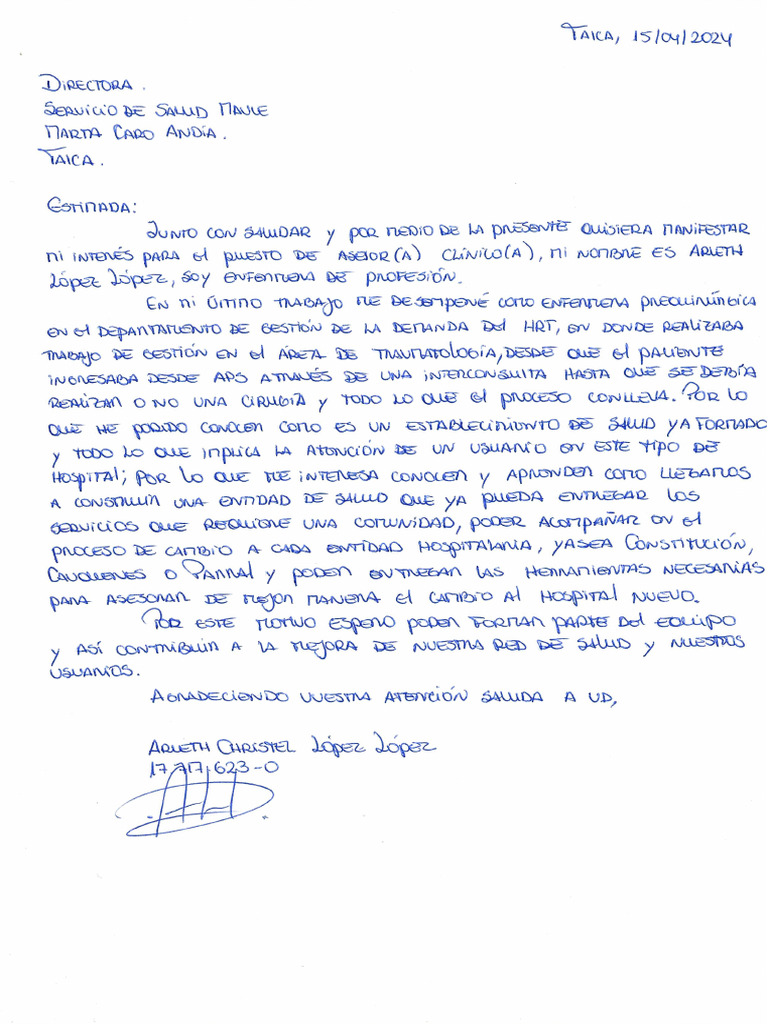 TALCA, 15/04/2024
DIRECTORA.
SERVICIO DE SALUD MAULE
MARTA CARO ANDÍA.
TALCA.
ESTIMADA:
JUNTO CON SALUDAR Y POR MEDIO DE LA PRESENTE QUISIERA MANIFESTAR
MI INTERÉS PARA EL PUESTO DE ASESOR(A) CLÍNICO(A), MI NOMBRE ES ARLETH
LÓPEZ LÓPEZ, SOY ENFERMERA DE PROFESIÓN.
EN MI ÚLTIMO TRABAJO ME DESEMPEÑÉ COMO ENFERMERA PREQUIRÚRGICA
EN EL DEPARTAMENTO DE GESTIÓN DE LA DEMANDA DEL HRT, EN DONDE REALIZABA
TRABAJO DE GESTIÓN EN EL ÁREA DE TRAUMATOLOGÍA, DESDE QUE EL PACIENTE
INGRESABA DESDE APS A TRAVÉS DE UNA INTERCONSULTA HASTA QUE SE DEBÍA
REALIZAR O NO UNA CIRUGÍA Y TODO LO QUE EL PROCESO CONLLEVA. POR LO
QUE HE PODIDO CONOCER COMO ES UN ESTABLECIMIENTO DE SALUD YA FORMADO
Y TODO LO QUE IMPLICA LA ATENCIÓN DE UN USUARIO EN ESTE TIPO DE
HOSPITAL; POR LO QUE ME INTERESA CONOCER Y APRENDER COMO LLEGAMOS
A CONSTRUIR UNA ENTIDAD DE SALUD QUE YA PUEDA ENTREGAR LOS
SERVICIOS QUE REQUIERE UNA COMUNIDAD, PODER ACOMPAÑAR EN EL
PROCESO DE CAMBIO A CADA ENTIDAD HOSPITALARIA, YA SEA CONSTITUCIÓN,
CAUQUENES O PARRAL Y PODER ENTREGAR LAS HERRAMIENTAS NECESARIAS
PARA ASESORAR DE MEJOR MANERA EL CAMBIO AL HOSPITAL NUEVO.
POR ESTE MOTIVO ESPERO PODER FORMAR PARTE DEL EQUIPO
Y ASÍ CONTRIBUIR A LA MEJORA DE NUESTRA RED DE SALUD Y NUESTROS
USUARIOS.
AGRADECIENDO VUESTRA ATENCIÓN SALUDA A UD,
ARLETH CHRISTEL LÓPEZ LÓPEZ
17.717.623-0